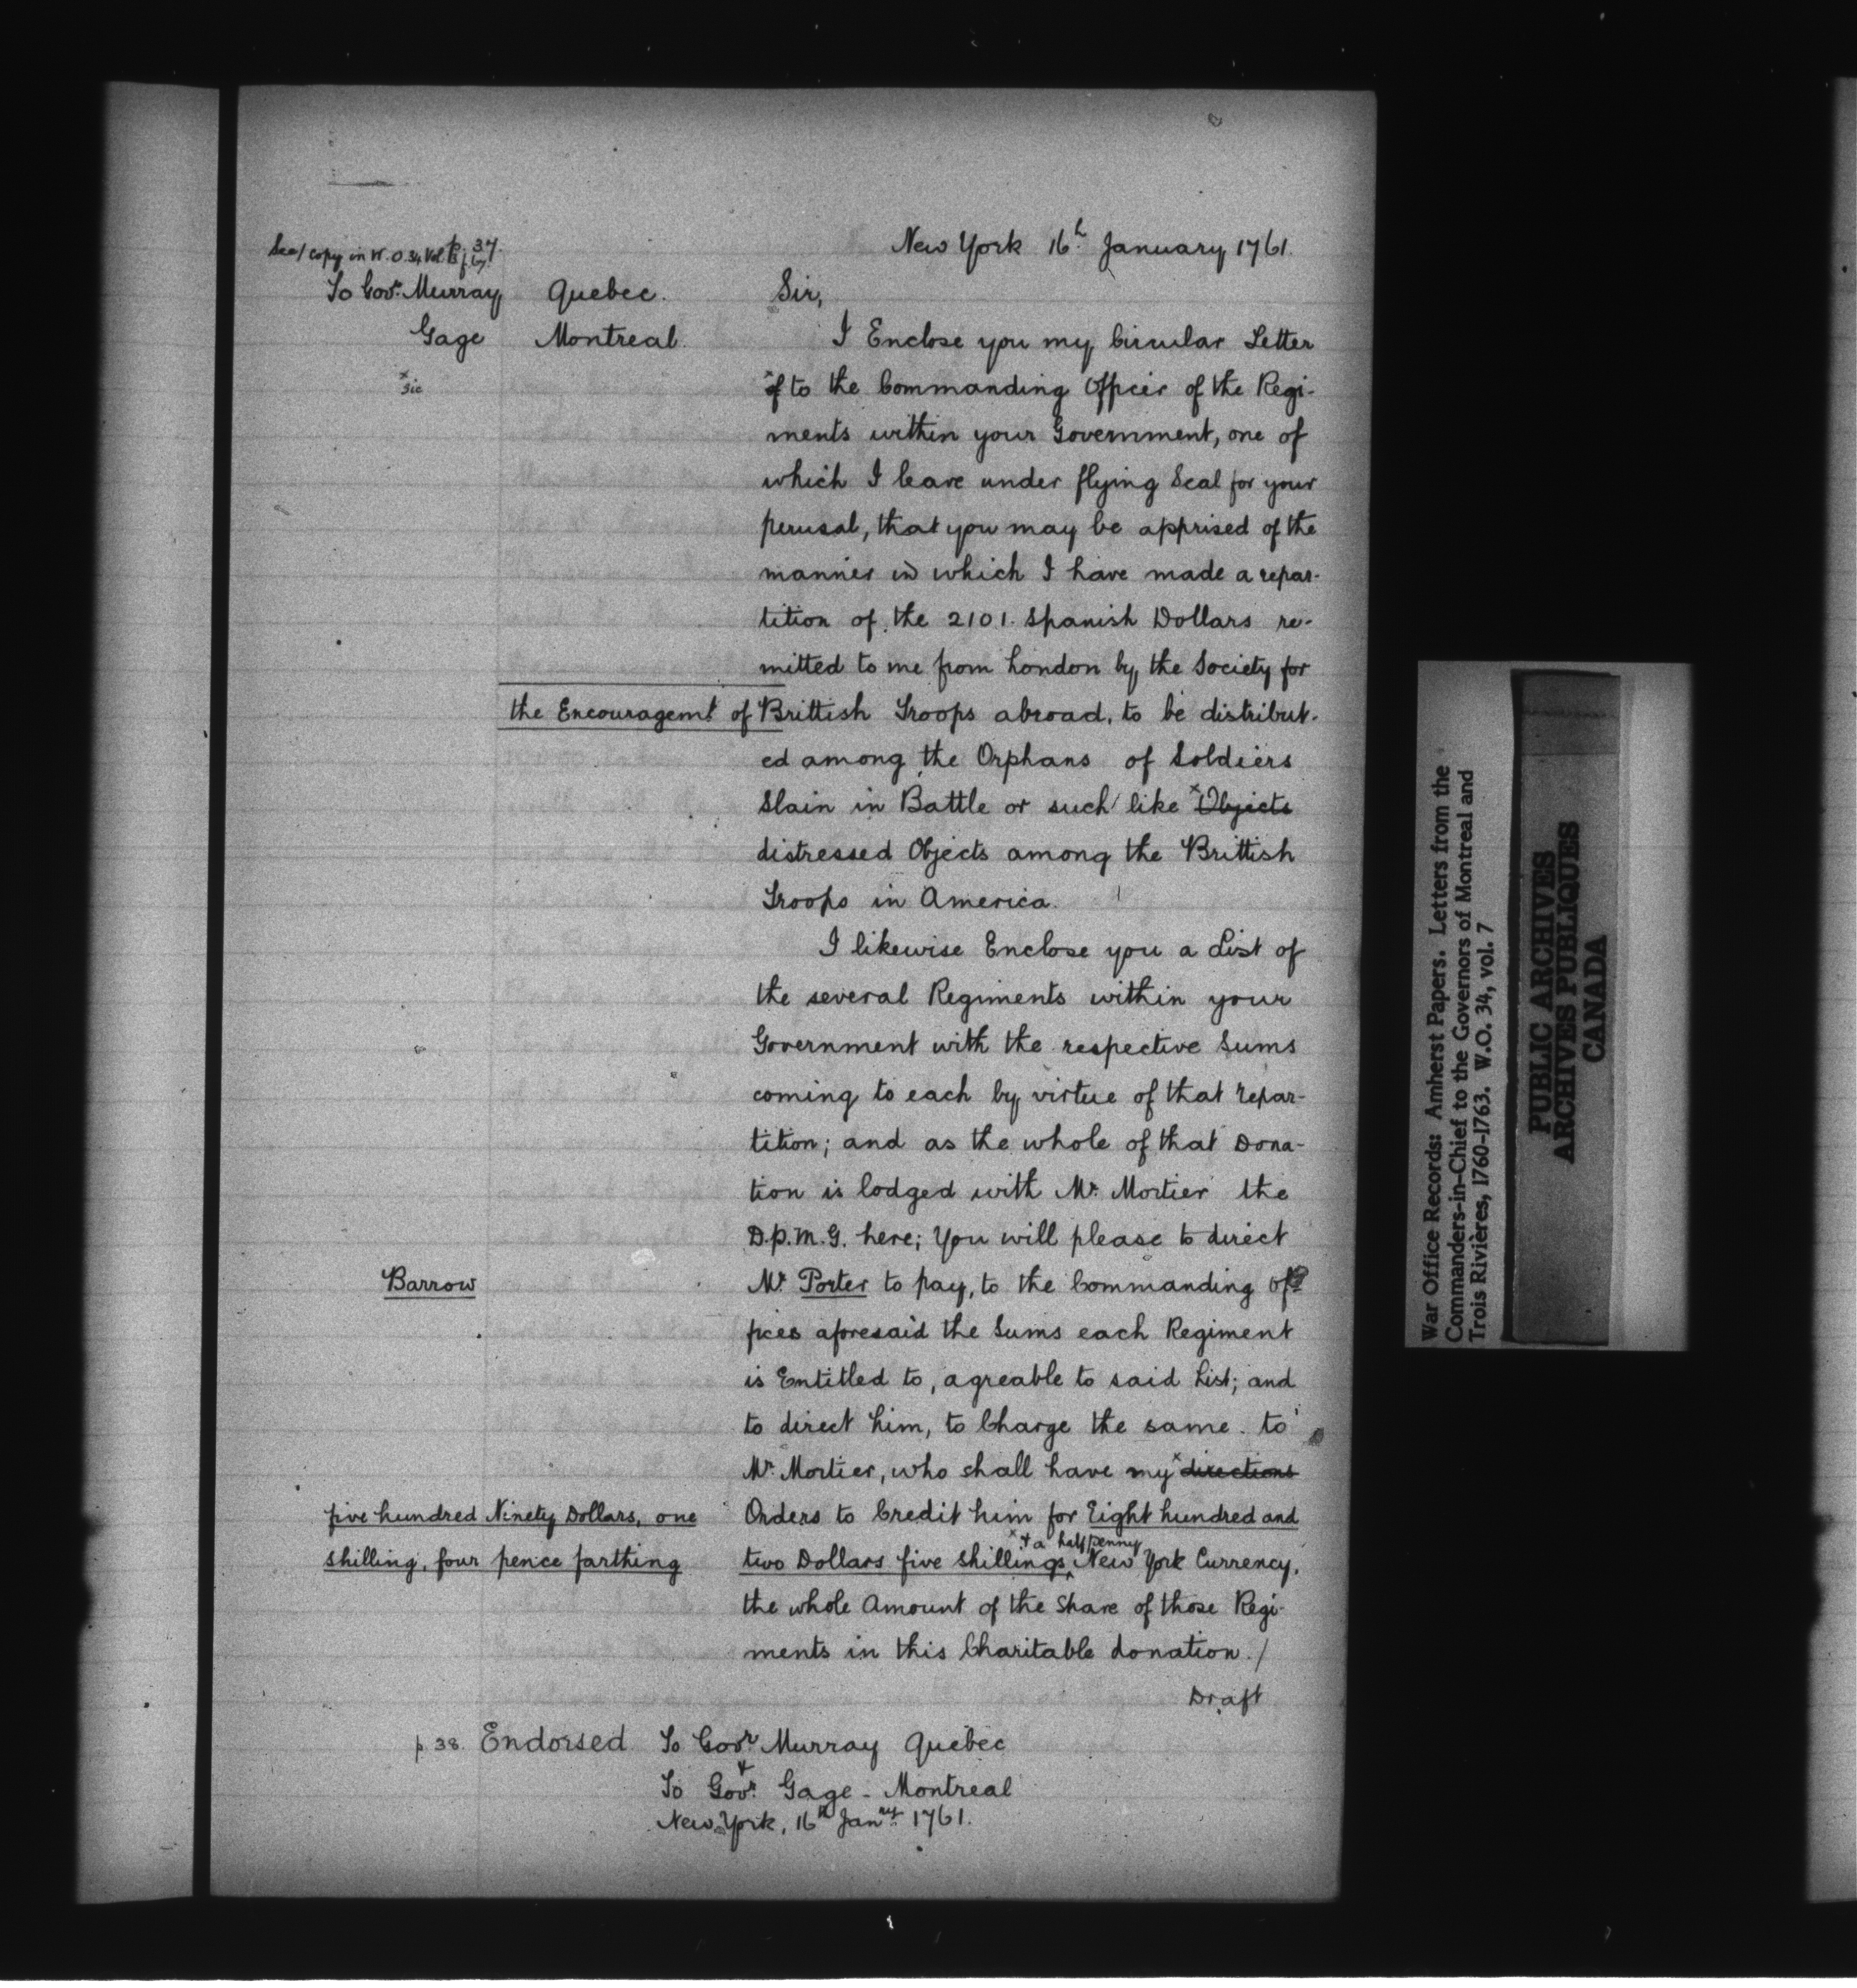 New York 16th January 1761.
See copy in W.O. 34 Vol. p. 37.
To Govr. Murray Quebec. Sir,
Gage Montreal. I Enclose you my Circular Letter
x sic x of to the Commanding Officer of the Regi-
ments within your Government, one of
which I leave under flying Seal for your
perusal, that you may be apprised of the
manner in which I have made a repar-
tition of the 2101. Spanish Dollars re-
mitted to me from London by the Society for
the Encouragemt. of Brittish Troops abroad, to be distribut-
ed among the Orphans of Soldiers
Slain in Battle or such like x Objects
distressed Objects among the Brittish
Troops in America.
I likewise Enclose you a List of
the several Regiments within your
Government with the respective Sums
coming to each by virtue of that repar-
tition; and as the whole of that Dona-
tion is lodged with Mr. Mortier the
D.P.M.G. here; You will please to direct
Barrow Mr. Porter to pay, to the Commanding Of-
ficer aforesaid the Sums each Regiment
is Entitled to, agreable to said List; and
to direct him, to Charge the same to
Mr. Mortier, who shall have my x directions
five hundred Ninety Dollars, one Orders to Credit him for Eight hundred and
x & a halfpenny
shilling, four pence farthing two Dollars five shillings ^ New York Currency,
the whole Amount of the Share of those Regi-
ments in this Charitable donation. /
Draft
p. 38. Endorsed To Govr. Murray Quebec
&
To Govr. Gage - Montreal
New York, 16th Janry. 1761.
War Office Records: Amherst Papers. Letters from the
Commanders-in-Chief to the Governors of Montreal and
Trois Rivières, 1760-1763. W.O. 34, vol. 7
PUBLIC ARCHIVES
ARCHIVES PUBLIQUES
CANADA